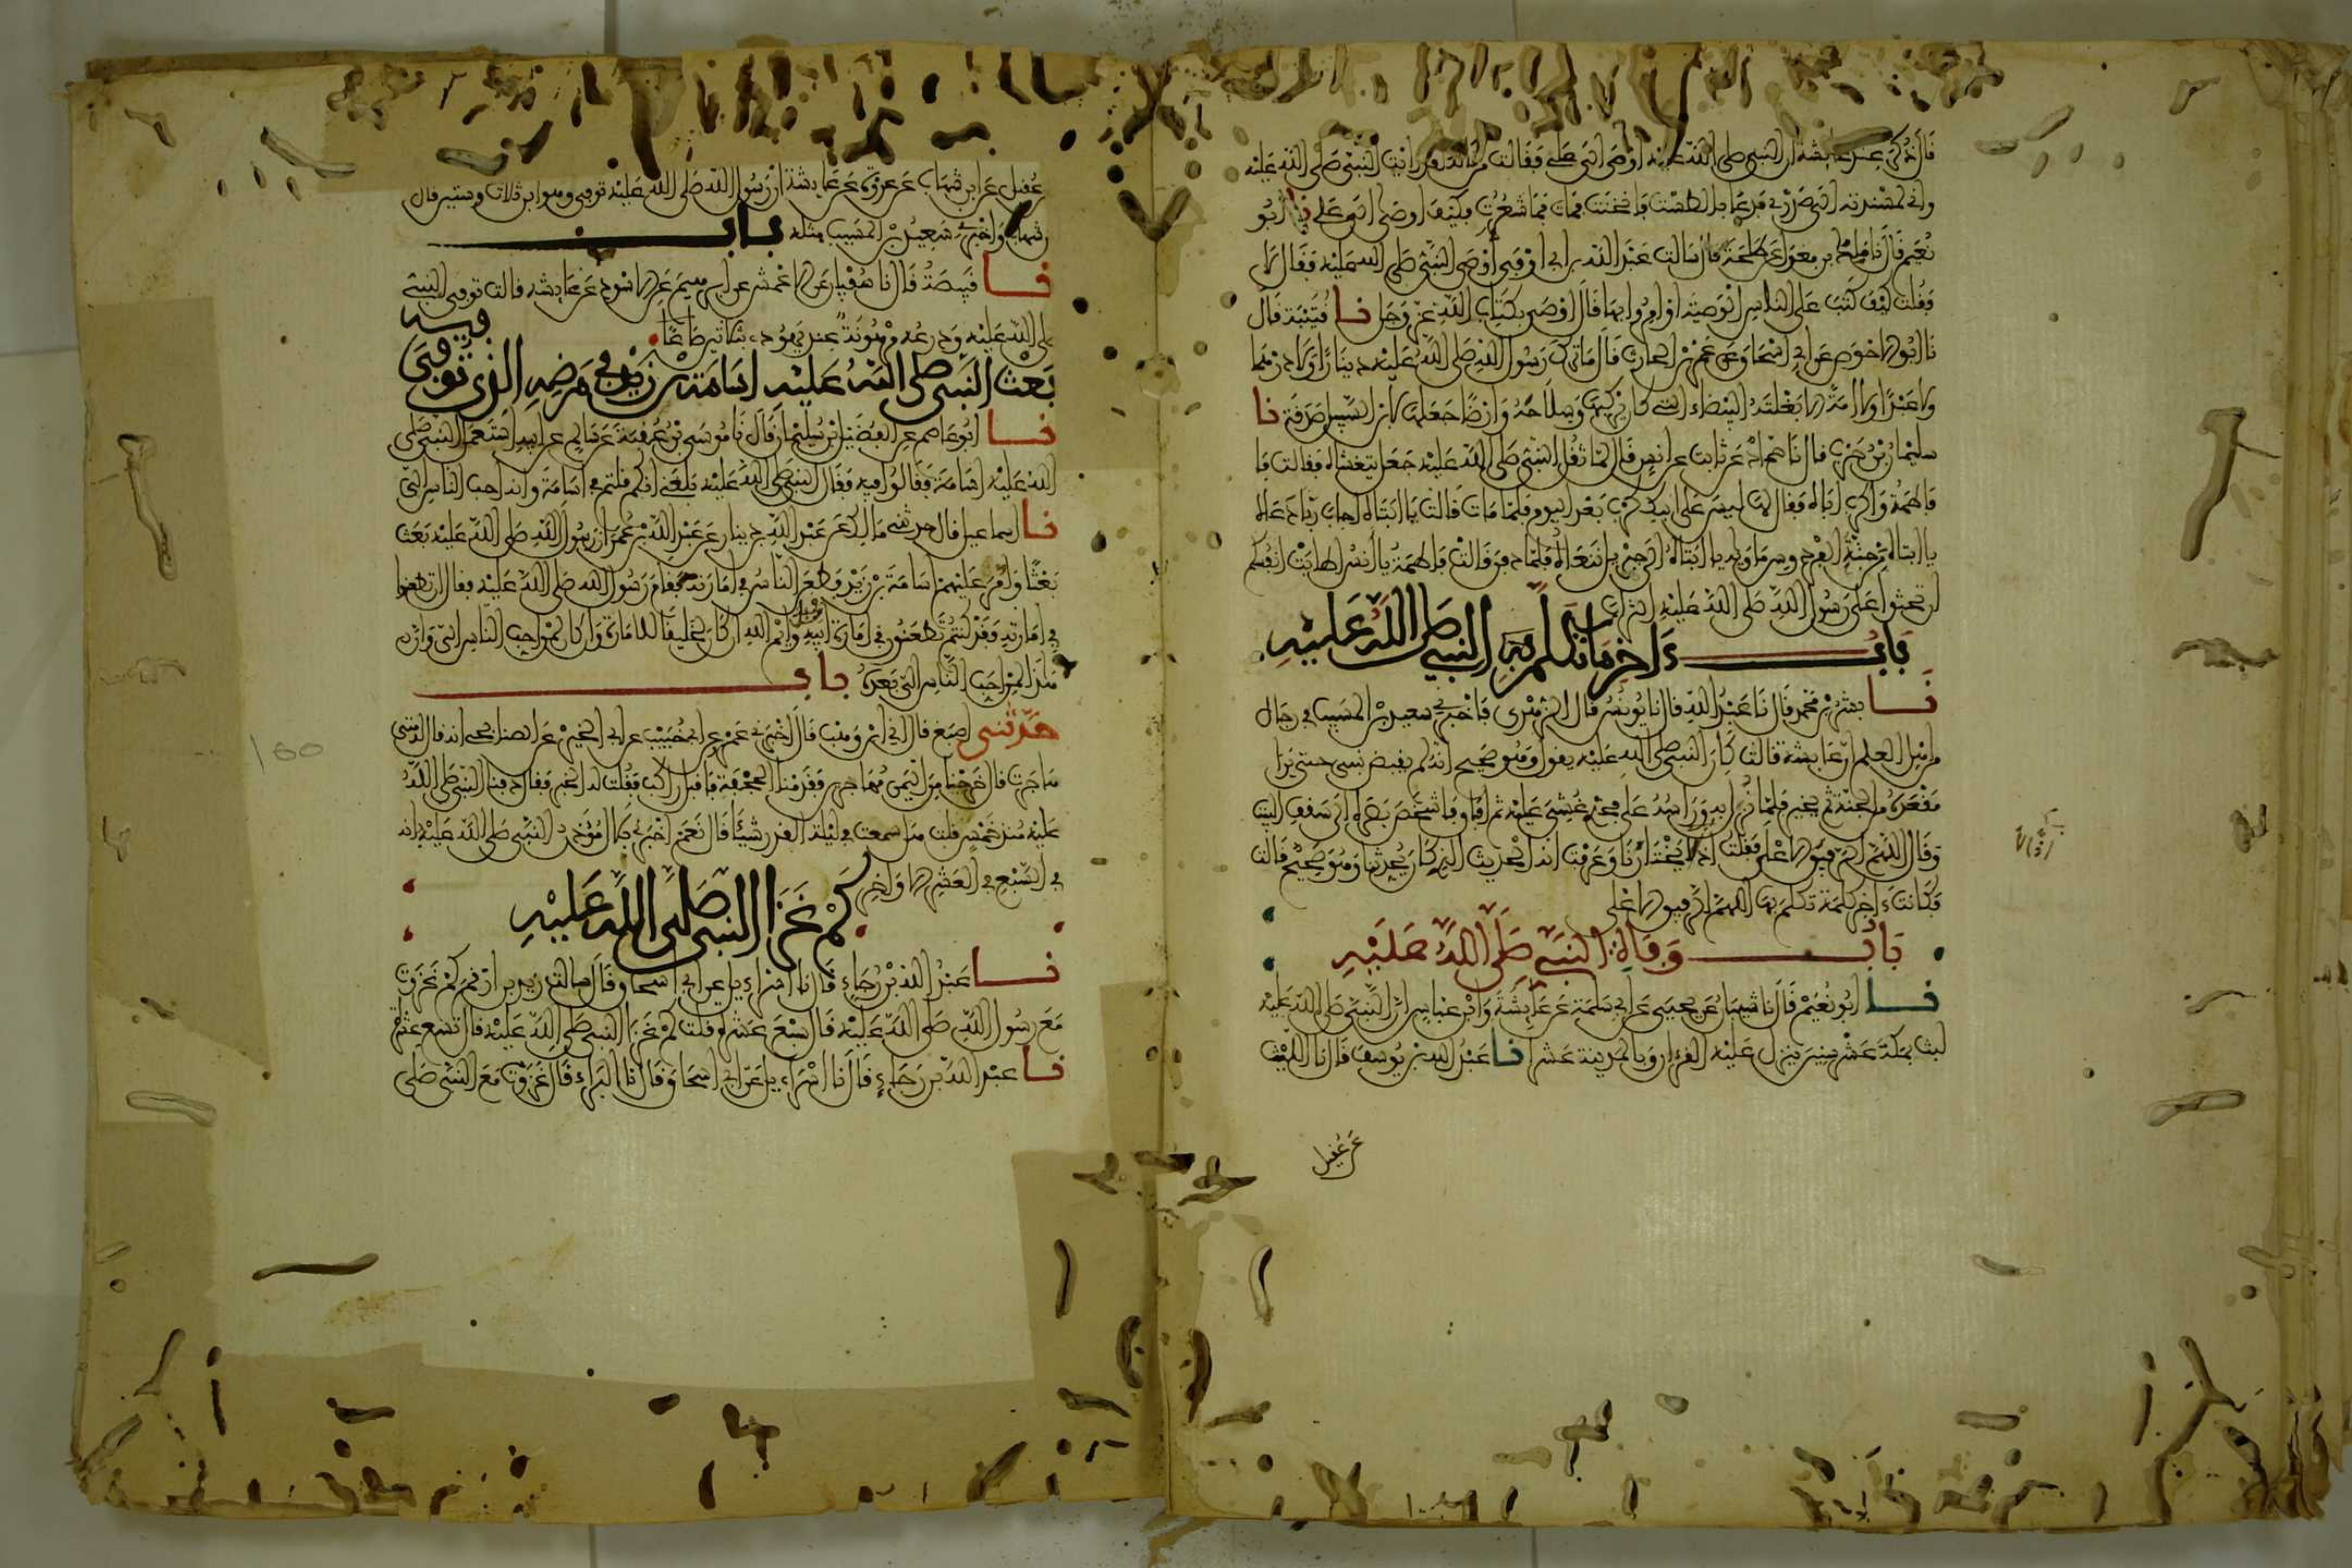 قال ذكر عند عائشة أن النبي صلى الله عليه أوصى إلى علي فقالت من قاله لقد رأيت النبي صلى الله عليه
وإني لمسندته إلى صدري فدعا بالطست فانخنث فمات فما شعرت فكيف أوصى إلى علي نا أبو
نعيم قال نا مالك بن مغول عن طلحة قال سألت عبد الله بن أبي أوفى أوصى النبي صلى الله عليه فقال لا
فقلت كيف كتب على الناس الوصية أو أمروا بها قال أوصى بكتاب الله عز وجل نا قتيبة قال
نا أبو الأحوص عن أبي إسحاق عن عمرو بن الحارث قال ما ترك رسول الله صلى الله عليه دينارا ولا درهما
ولا عبدا ولا أمة إلا بغلته البيضاء التي كان يركبها وسلاحه وأرضا جعلها لابن السبيل صدقة نا
سليمان بن حرب قال نا حماد عن ثابت عن أنس قال لما ثقل النبي صلى الله عليه جعل يتغشاه فقالت فا
فاطمة واكرب أباه فقال لها ليس على أبيك كرب بعد اليوم فلما مات قالت يا أبتاه أجاب ربا دعاه
يا أبتاه من جنة الفردوس مأواه يا أبتاه إلى جبريل ننعاه فلما دفن قالت فاطمة يا أنس أطابت أنفسكم
أن تحثوا على رسول الله صلى الله عليه التراب
باب ءاخر ما تكلم به النبي صلى الله عليه
نا بشر بن محمد قال نا عبد الله قال نا يونس قال الزهري فأخبرني سعيد بن المسيب في رجال
من أهل العلم أن عائشة قالت كان النبي صلى الله عليه يقول وهو صحيح إنه لم يقبض نبي حتى يرا
مقعده من الجنة ثم يخير فلما نزل به ورأسه على فخذي غشي عليه ثم أفاق فأشخص بصره إلى سقف البيت
وقال اللهم الرفيق الأعلى فقلت إذا لا يختارنا وعرفت أنه الحديث الذي كان يحدثنا وهو صحيح قالت
فكانت ءاخر كلمة تكلم بها اللهم الرفيق الأعلى
باب وفاة النبي صلى الله عليه
نا أبو نعيم قال نا شيبان عن يحيى عن أبي سلمة عن عائشة وابن عباس أن النبي صلى الله عليه
لبث بمكة عشر سنين ينزل عليه القرءان وبالمدينة عشرا نا عبد الله بن يوسف قال نا الليث
عن عقيل
عقيل عن ابن شهاب عن عروة عن عائشة أن رسول الله صلى الله عليه توفي وهو ابن ثلاث وستين قال
شهاب وأخبرني سعيد بن المسيب مثله باب
نا قبيصة قال نا سفيان عن الأعمش عن إبراهيم عن الأسود عن عائشة قالت توفي النبي
صلى الله عليه ودرعه مرهونة عند يهودي بثلاثين صاعا
بعث النبي صلى الله عليه أسامة بن زيد في مرضه الذي توفي فيه
نا أبو عاصم عن الفضيل بن سليمان قال نا موسى بن عقبة عن سالم عن أبيه استعمل النبي صلى
الله عليه أسامة فقالوا فيه فقال النبي صلى الله عليه بلغني أنكم قلتم في أسامة وإنه أحب الناس إلي
نا إسماعيل قال حدثني مالك عن عبد الله بن دينار عن عبد الله بن عمر أن رسول الله صلى الله عليه بعث
بعثا وأمر عليهم أسامة بن زيد فطعن الناس في إمارته فقام رسول الله صلى الله عليه فقال إن تطعنوا
في إمارته فقد كنتم تطعنون في إمارة أبيه من قبل وايم الله إن كان لخليقا للإمارة وإن كان لمن أحب الناس إلي وإن
هذا لمن أحب الناس إلي بعده باب
حدثني أصبغ قال أني ابن وهب قال أخبرني عمرو عن ابن أبي حبيب عن أبي الخير عن الصنابحي أنه قال له متى
هاجرت قال خرجنا من اليمن مهاجرين فقدمنا الجحفة فأقبل راكب فقلت له الخبر فقال دفنا النبي صلى الله
عليه منذ خمس قلت هل سمعت في ليلة القدر شيئا قال نعم أخبرني بلال مؤذن النبي صلى الله عليه أنه
في السبع في العشر الأواخر
كم غزا النبي صلى الله عليه
نا عبد الله بن رجاء قال نا إسراءيل عن أبي إسحاق قال سألت زيد بن أرقم كم غزوت
مع رسول الله صلى الله عليه قال سبع عشرة قلت كم غزا النبي صلى الله عليه قال تسع عشرة
نا عبد الله بن رجاء قال نا إسراءيل عن أبي إسحاق قال نا البراء قال غزوت مع النبي صلى
160